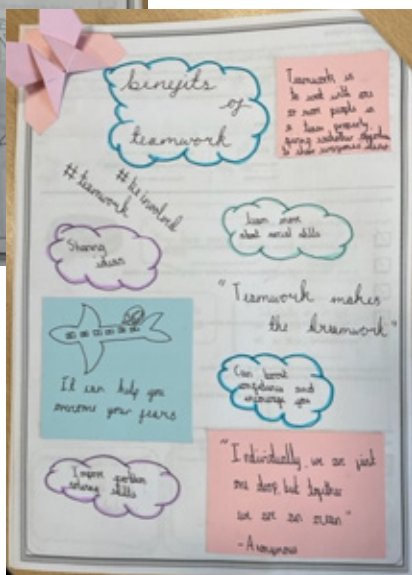 benefits
of
teamwork
Teamwork is
to work with one
or more people in
a team properly
giving each other
to share
#teamwork
#be involved
Sharing
ideas
learn more
about social skills
"Teamwork makes
the dreamwork"
It can help you
overcome your fears
Can boost
confidence and
encourage you
Improve problem
solving skills
"Individually, we are just
one drop, but together
we are an ocean"
- Anonymous